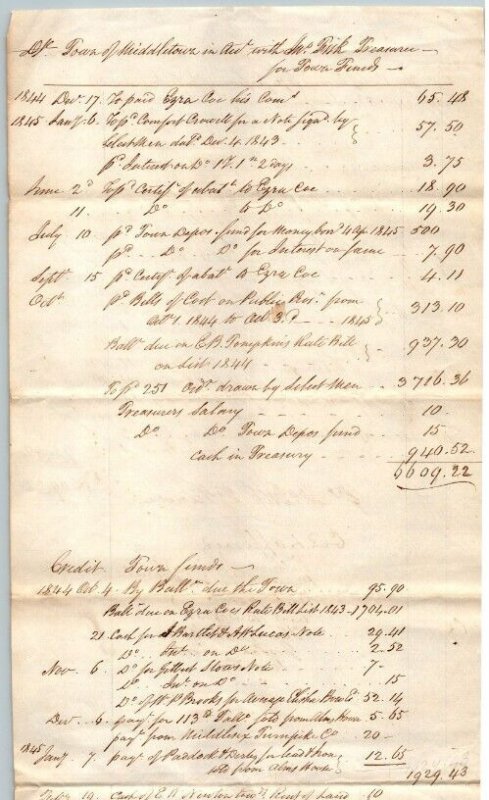 Dr. Town of Middletown in Acct. with Jno. Fisk Treasurer
for Town Funds
1844 Dec. 17. To paid Ezra Coe his Comn. 65.48
1845 Jany. 6. To pd. Comfort Crowell for a Note signd. by
Select Men dat. Dec. 4. 1843 57.50
pd. Interest on Do 1 Y. 1 m 2 days 3.75
June 2d To pd. Certif. of abat. to Ezra Coe 18.90
11. Do to Do 19.30
July 10 pd. Town Depos. fund for Money bor. 4 Ap 1845 500
pd. Do Do for Interest on same 7.90
Sept. 15 pd. Certif. of abat. to Ezra Coe 4.11
Oct. pd. Bills of Cost on Public Pros. from
Oct. 1. 1844 to Oct 3d 1845 313.10
Ball. due on E. B. Tompkins Rate Bill
on List 1844 937.30
To pd. 251 Ord. drawn by Select Men 3716.36
Treasurers Salary 10
Do Do Town Depos fund 15
Cash in Treasury 940.52
6609.22
Credit Town funds
1844 Oct. 4. By Ball. due the Town 95.90
Ball. due on Ezra Coes Rate Bill List 1843 1704.01
21 Cash for Bartlet & Lucas Note 29.41
Do Int. on Do 2.52
Nov. 6. Do for Gilbert Stows Note 7
Do Int. on Do .15
Do of P. Brooks for Elisha 52.14
Dec. 6. pay. for 113 lb Tallo. sold from Alms House 5.65
pay. from Middlesex Turnpike Co 20
1845 Jany. 7. payt. of Paddock & for
sold from Alms House 12.65
1929.43
19. Cash of E. Newton Rent of Land 10